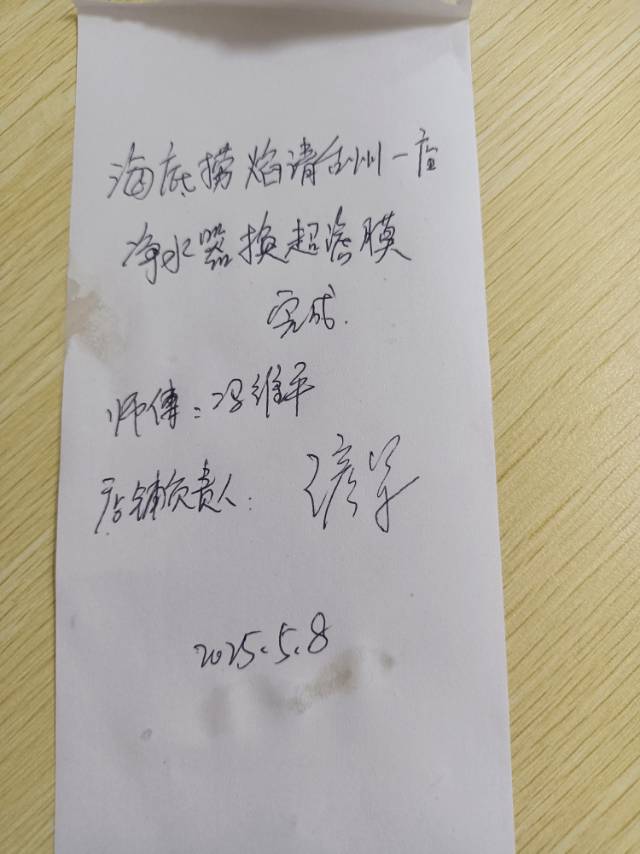 海底捞焰请台州一店
净水器换超滤膜
完成.
师傅:冯维平
店铺负责人:
2025.5.8